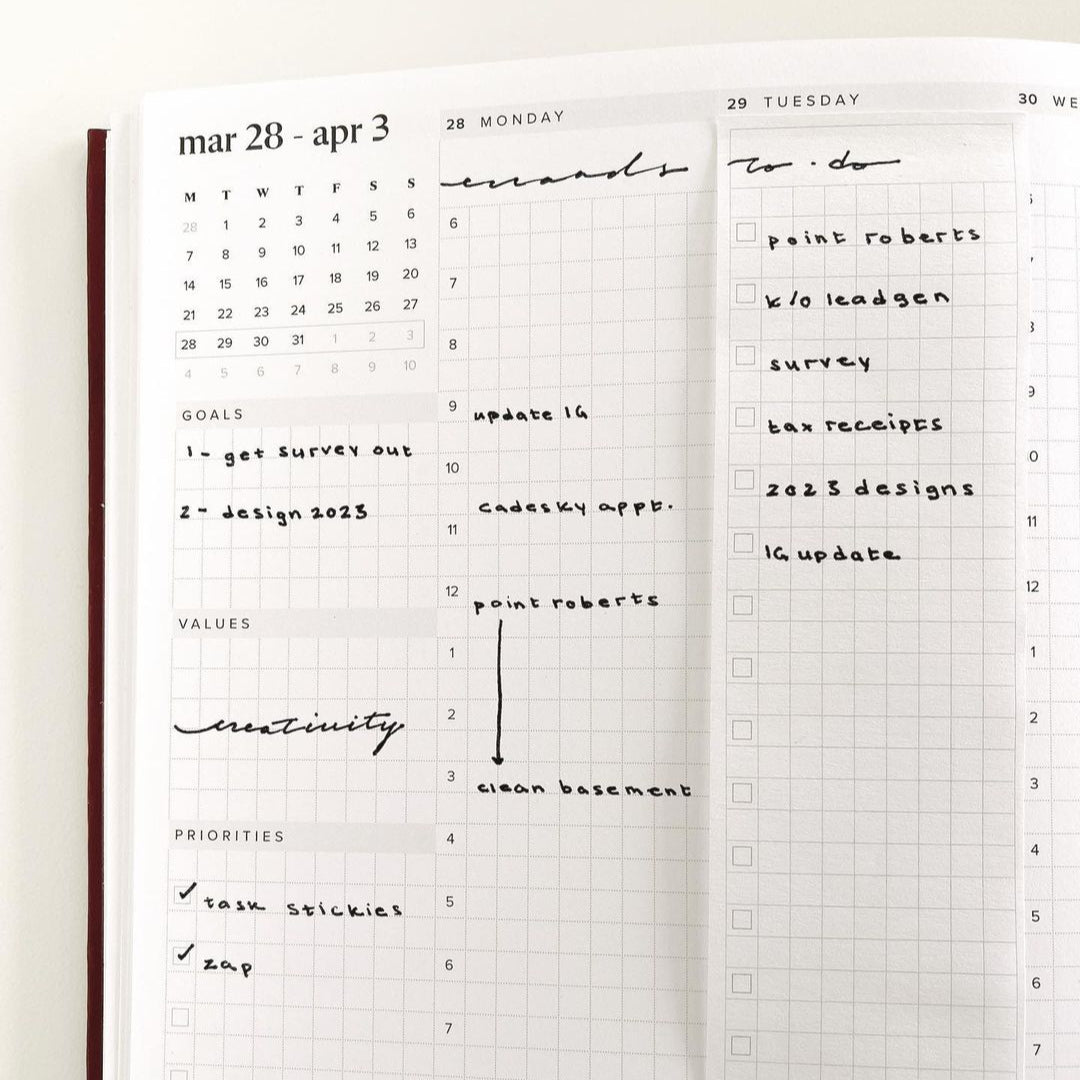 mar 28 - apr 3
M T W T F S S
28 1 2 3 4 5 6
7 8 9 10 11 12 13
14 15 16 17 18 19 20
21 22 23 24 25 26 27
28 29 30 31 1 2 3
4 5 6 7 8 9 10
GOALS
1 - get survey out
2 - design 2023
VALUES
creativity
PRIORITIES
✓ task stickies
✓ zap
28 MONDAY
errands
6
7
8
9 update IG
10
cadesky appt.
11
12 point roberts
1
2
3 clean basement
4
5
6
7
29 TUESDAY
to·do
point roberts
k/o leadgen
survey
tax receipts
2023 designs
IG update
30 WE
11
12
1
2
3
4
5
6
7